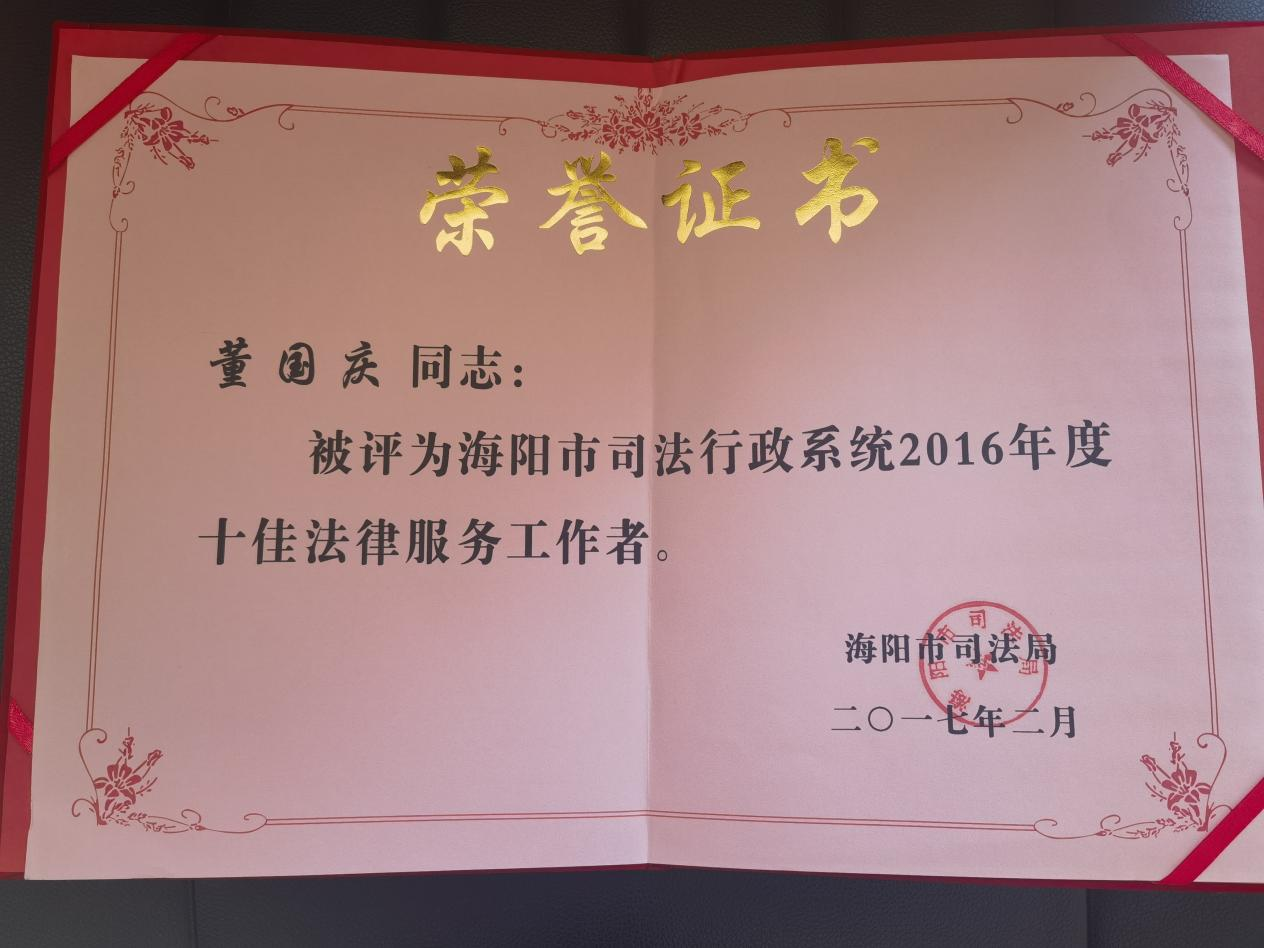 荣誉证书
董国庆 同志：
被评为海阳市司法行政系统2016年度
十佳法律服务工作者。
海阳市司法局
二〇一七年二月
海阳市司法局